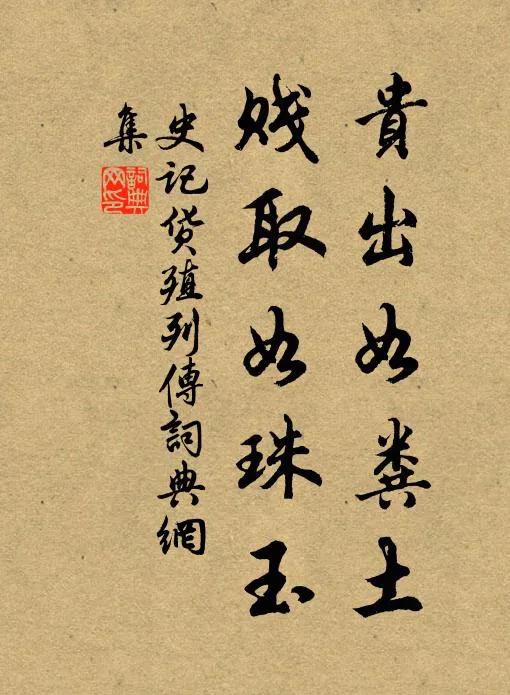 貴出如糞土
賤取如珠玉
史记货殖列傳詞典網
集
詞典网印